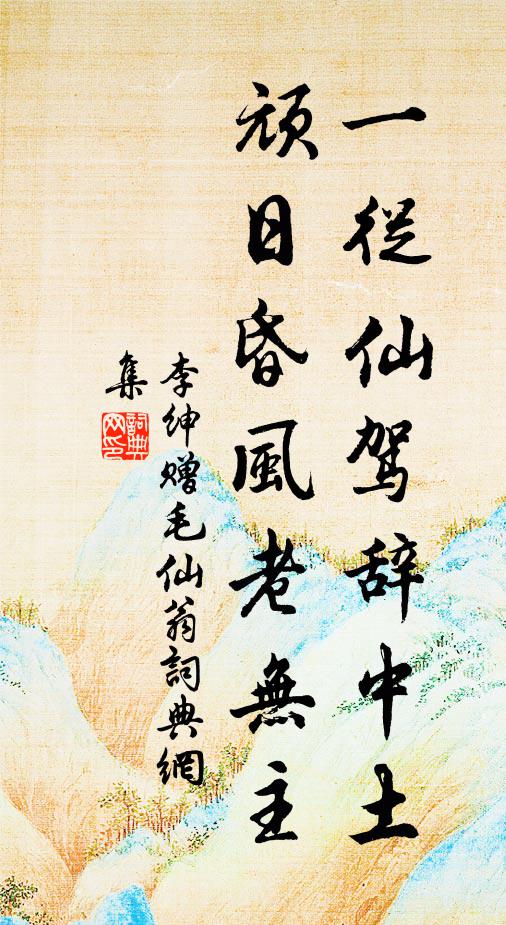 一從仙駕辞中土
頑日昏風老無主
李紳赠毛仙翁詞典網
集
詞典
网印